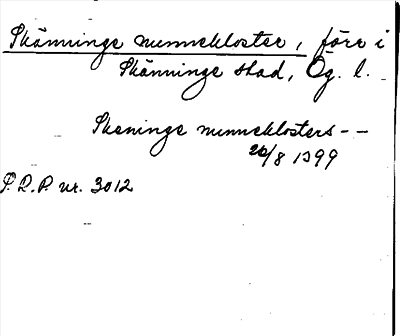 Skänninge nunnekloster, förr i
Skänninge stad, Ög. l.
Skeninge nunneklosters--
20/8 1399
P.R.P. nr. 3012